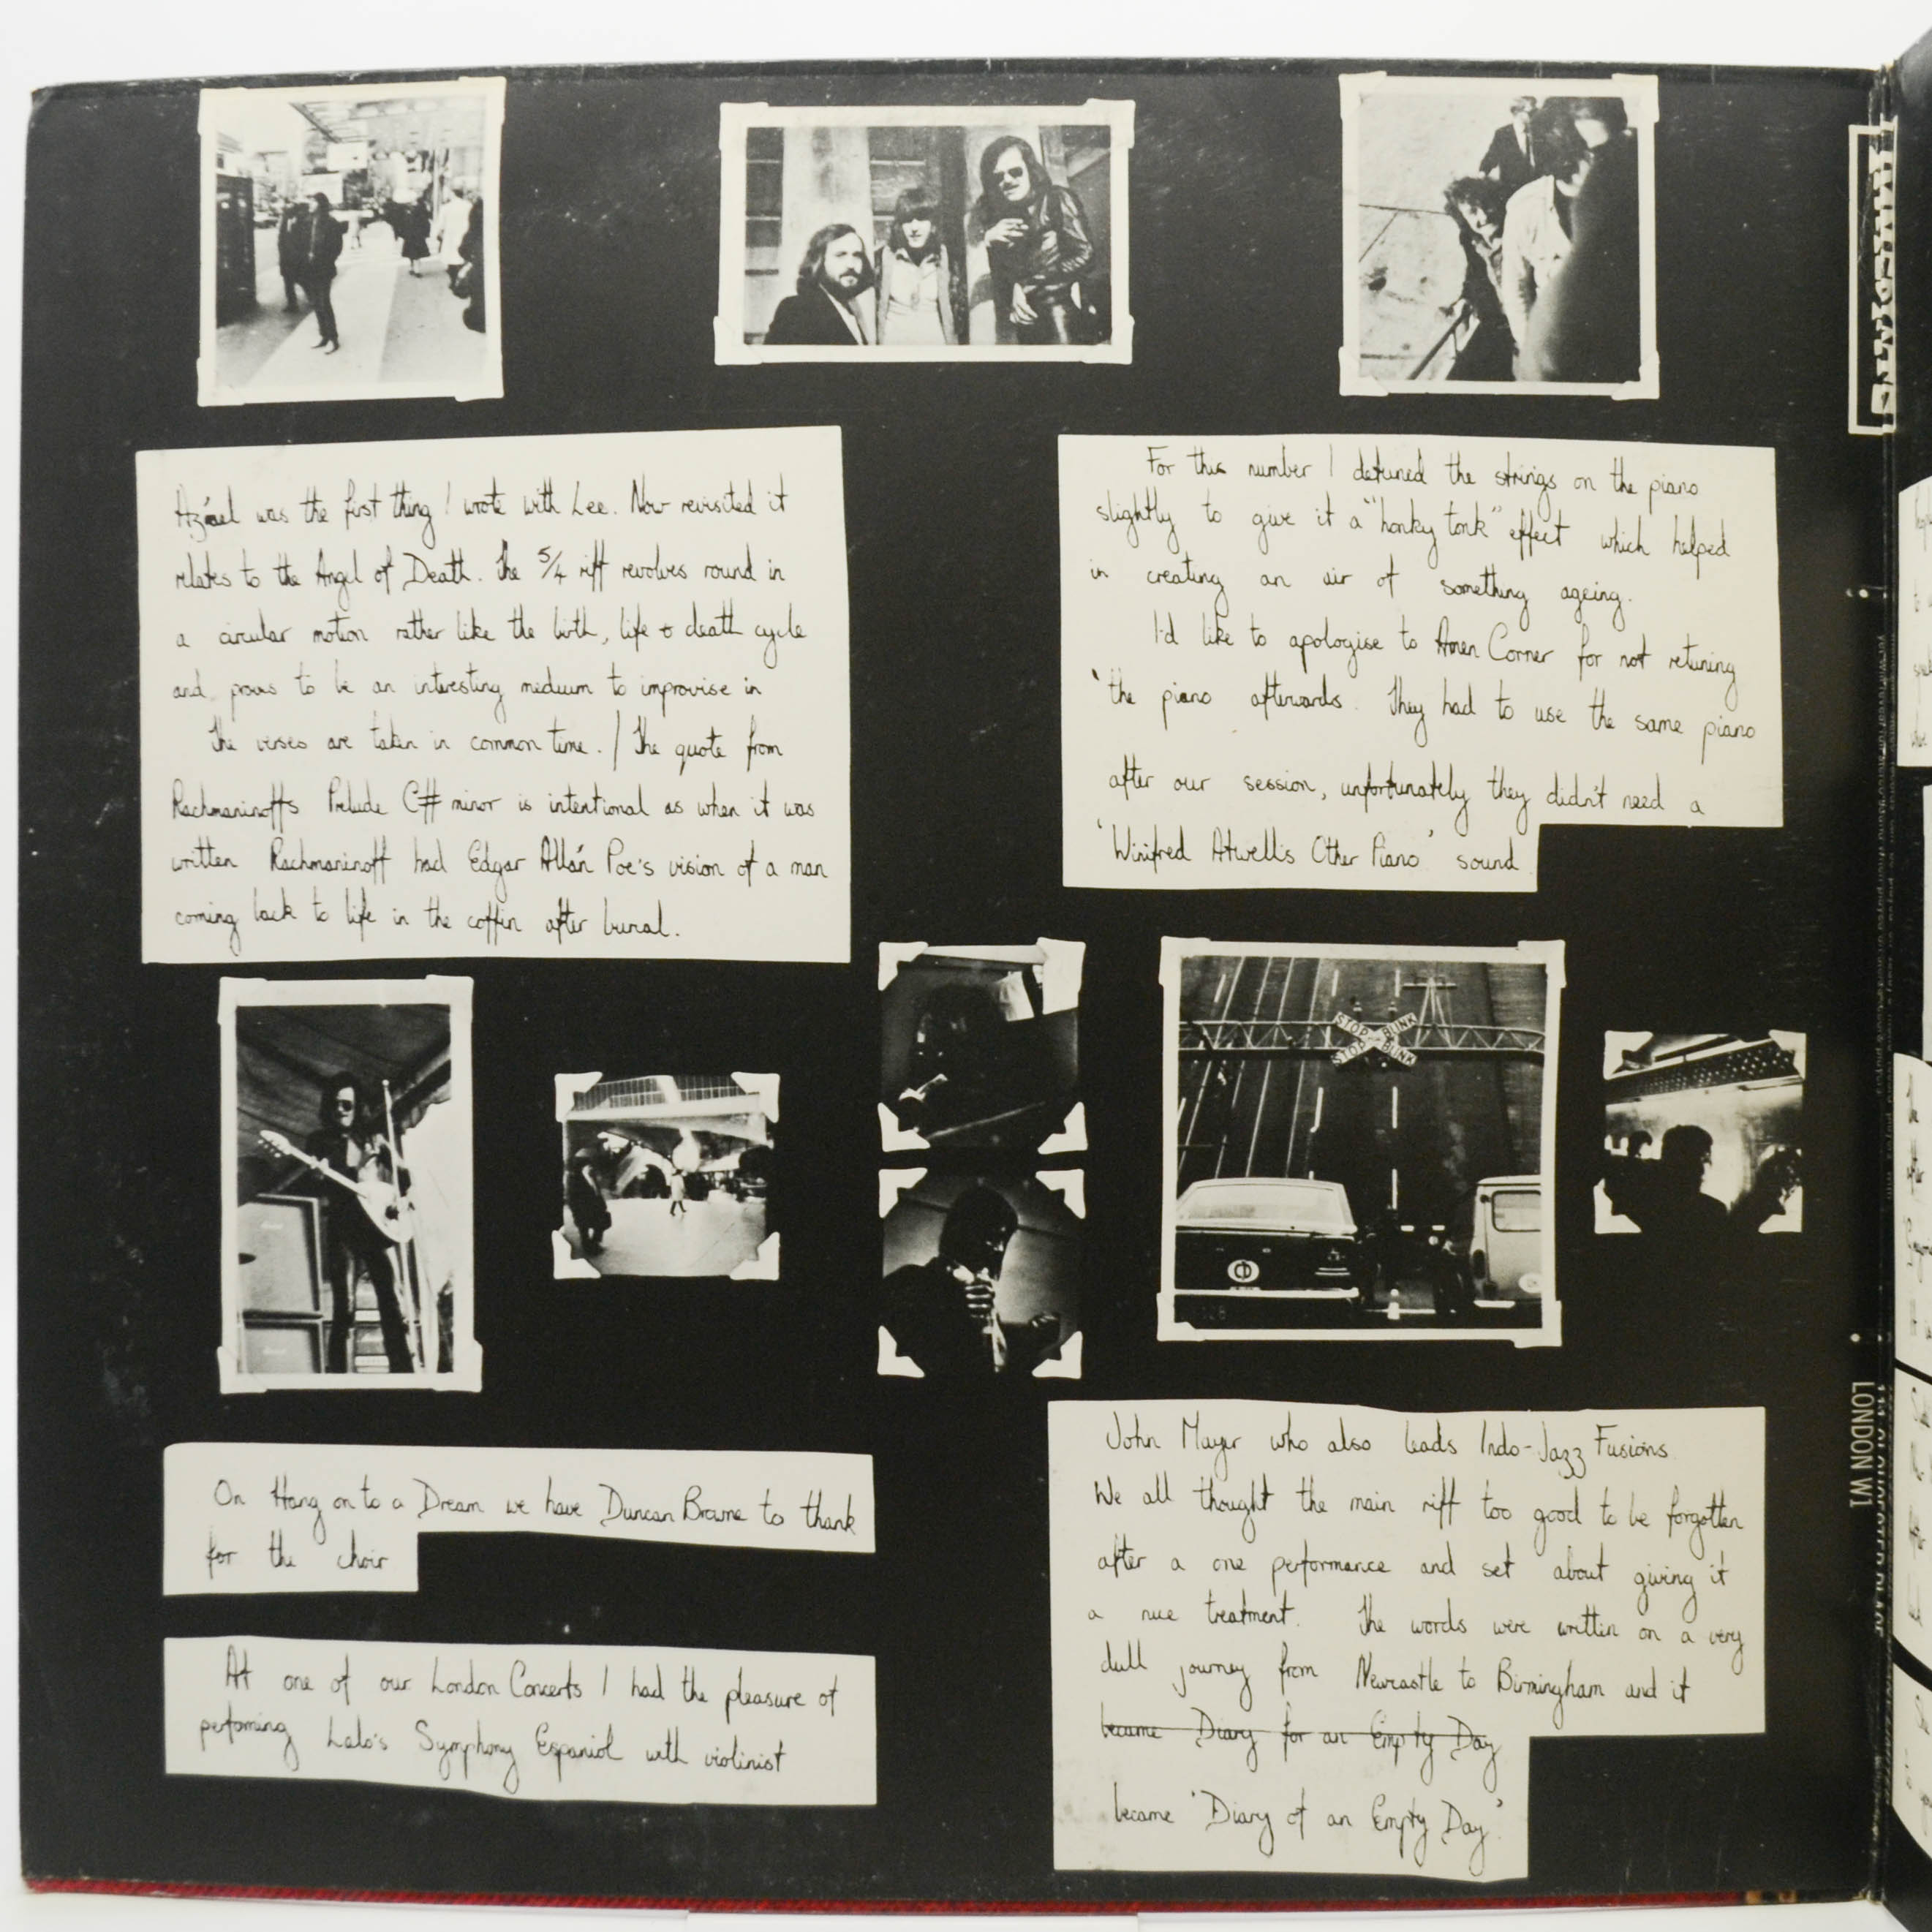 Azrael was the first thing I wrote with Lee. Now revisited it
relates to the Angel of Death. The 5/4 riff revolves round in
a circular motion rather like the birth, life & death cycle
and proves to be an interesting medium to improvise in
The verses are taken in common time. / The quote from
Rachmaninoffs Prelude C# minor is intentional as when it was
written Rachmaninoff had Edgar Allan Poe's vision of a man
coming back to life in the coffin after burial.
For this number I detuned the strings on the piano
slightly to give it a "honky tonk" effect which helped
in creating an air of something ageing.
I'd like to apologise to Amen Corner for not retuning
the piano afterwards. They had to use the same piano
after our session, unfortunately they didn't need a
'Winifred Atwell's Other Piano' sound
STOP BLINK
STOP BLINK
CD
On Hang on to a Dream we have Duncan Browne to thank
for the choir
At one of our London Concerts I had the pleasure of
performing Lalo's Symphony Espaniol with violinist
John Mayer who also leads Indo-Jazz Fusions.
We all thought the main riff too good to be forgotten
after a one performance and set about giving it
a nice treatment. The words were written on a very
dull journey from Newcastle to Birmingham and it
became Diary for an Empty Day
became 'Diary of an Empty Day'.
LONDON W1